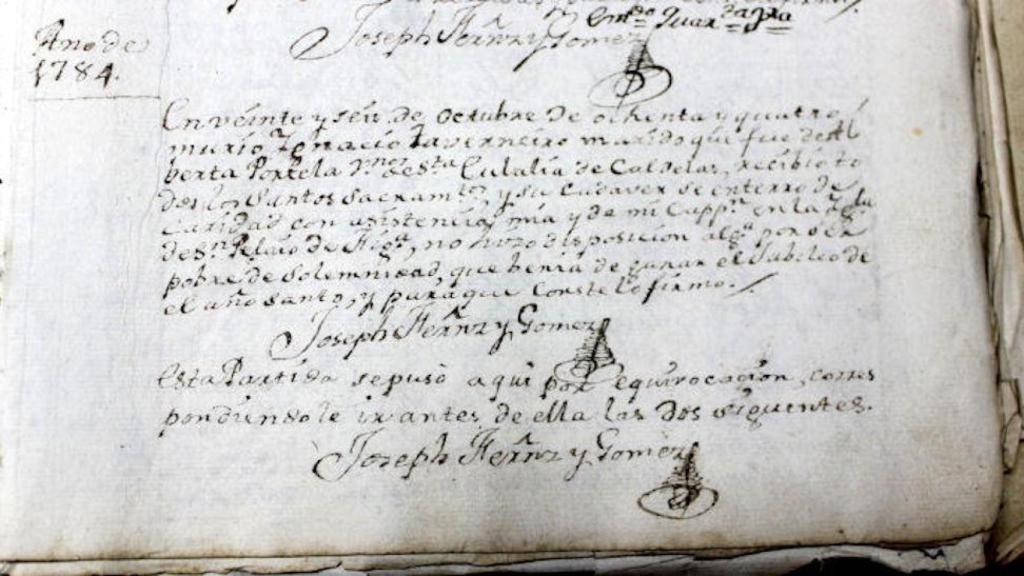 Joseph Fernz y Gomez
Año de
1784.
En veinte y seis de Octubre de ochenta y quatro
murio Ignacio Taverneiro marido que fue de Al
berta Portela vnos de Sta Eulalia de Caldelas, recibio to
dos los Santos Sacramtos, y su cadaver se enterro de
caridad con asistencia mia y de mi Cappn en la Iga
de Sn Pelaio de Figa, no hizo disposicion alga por ser
pobre de solemnidad, que benia de ganar el Jubileo de
el año santo, y para que conste lo firmo.
Joseph Fernz y Gomez
Esta Partida se puso aqui por equivocacion, corres
pondiendole ir antes de ella las dos siguentes.
Joseph Fernz y Gomez